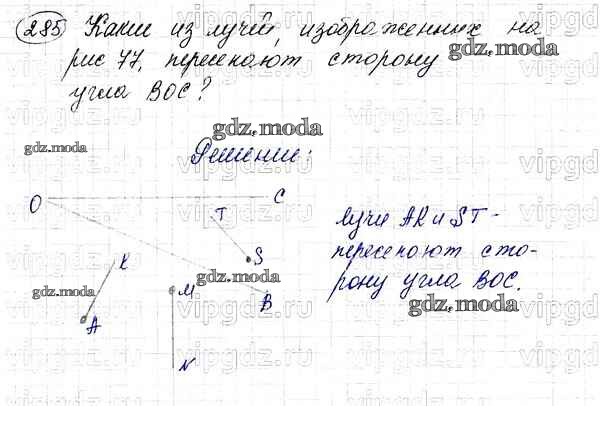 285 Какие из лучей, изображенных на
рис 77, пересекают сторону
gdz.moda
угла BOC?
gdz.moda
gdz.moda
Решение:
O
C
T
лучи AK и ST -
S
пересекают сто-
K
gdz.moda
рону угла BOC.
gdz.moda
M
B
gdz.moda
A
N
vipgdz.ru